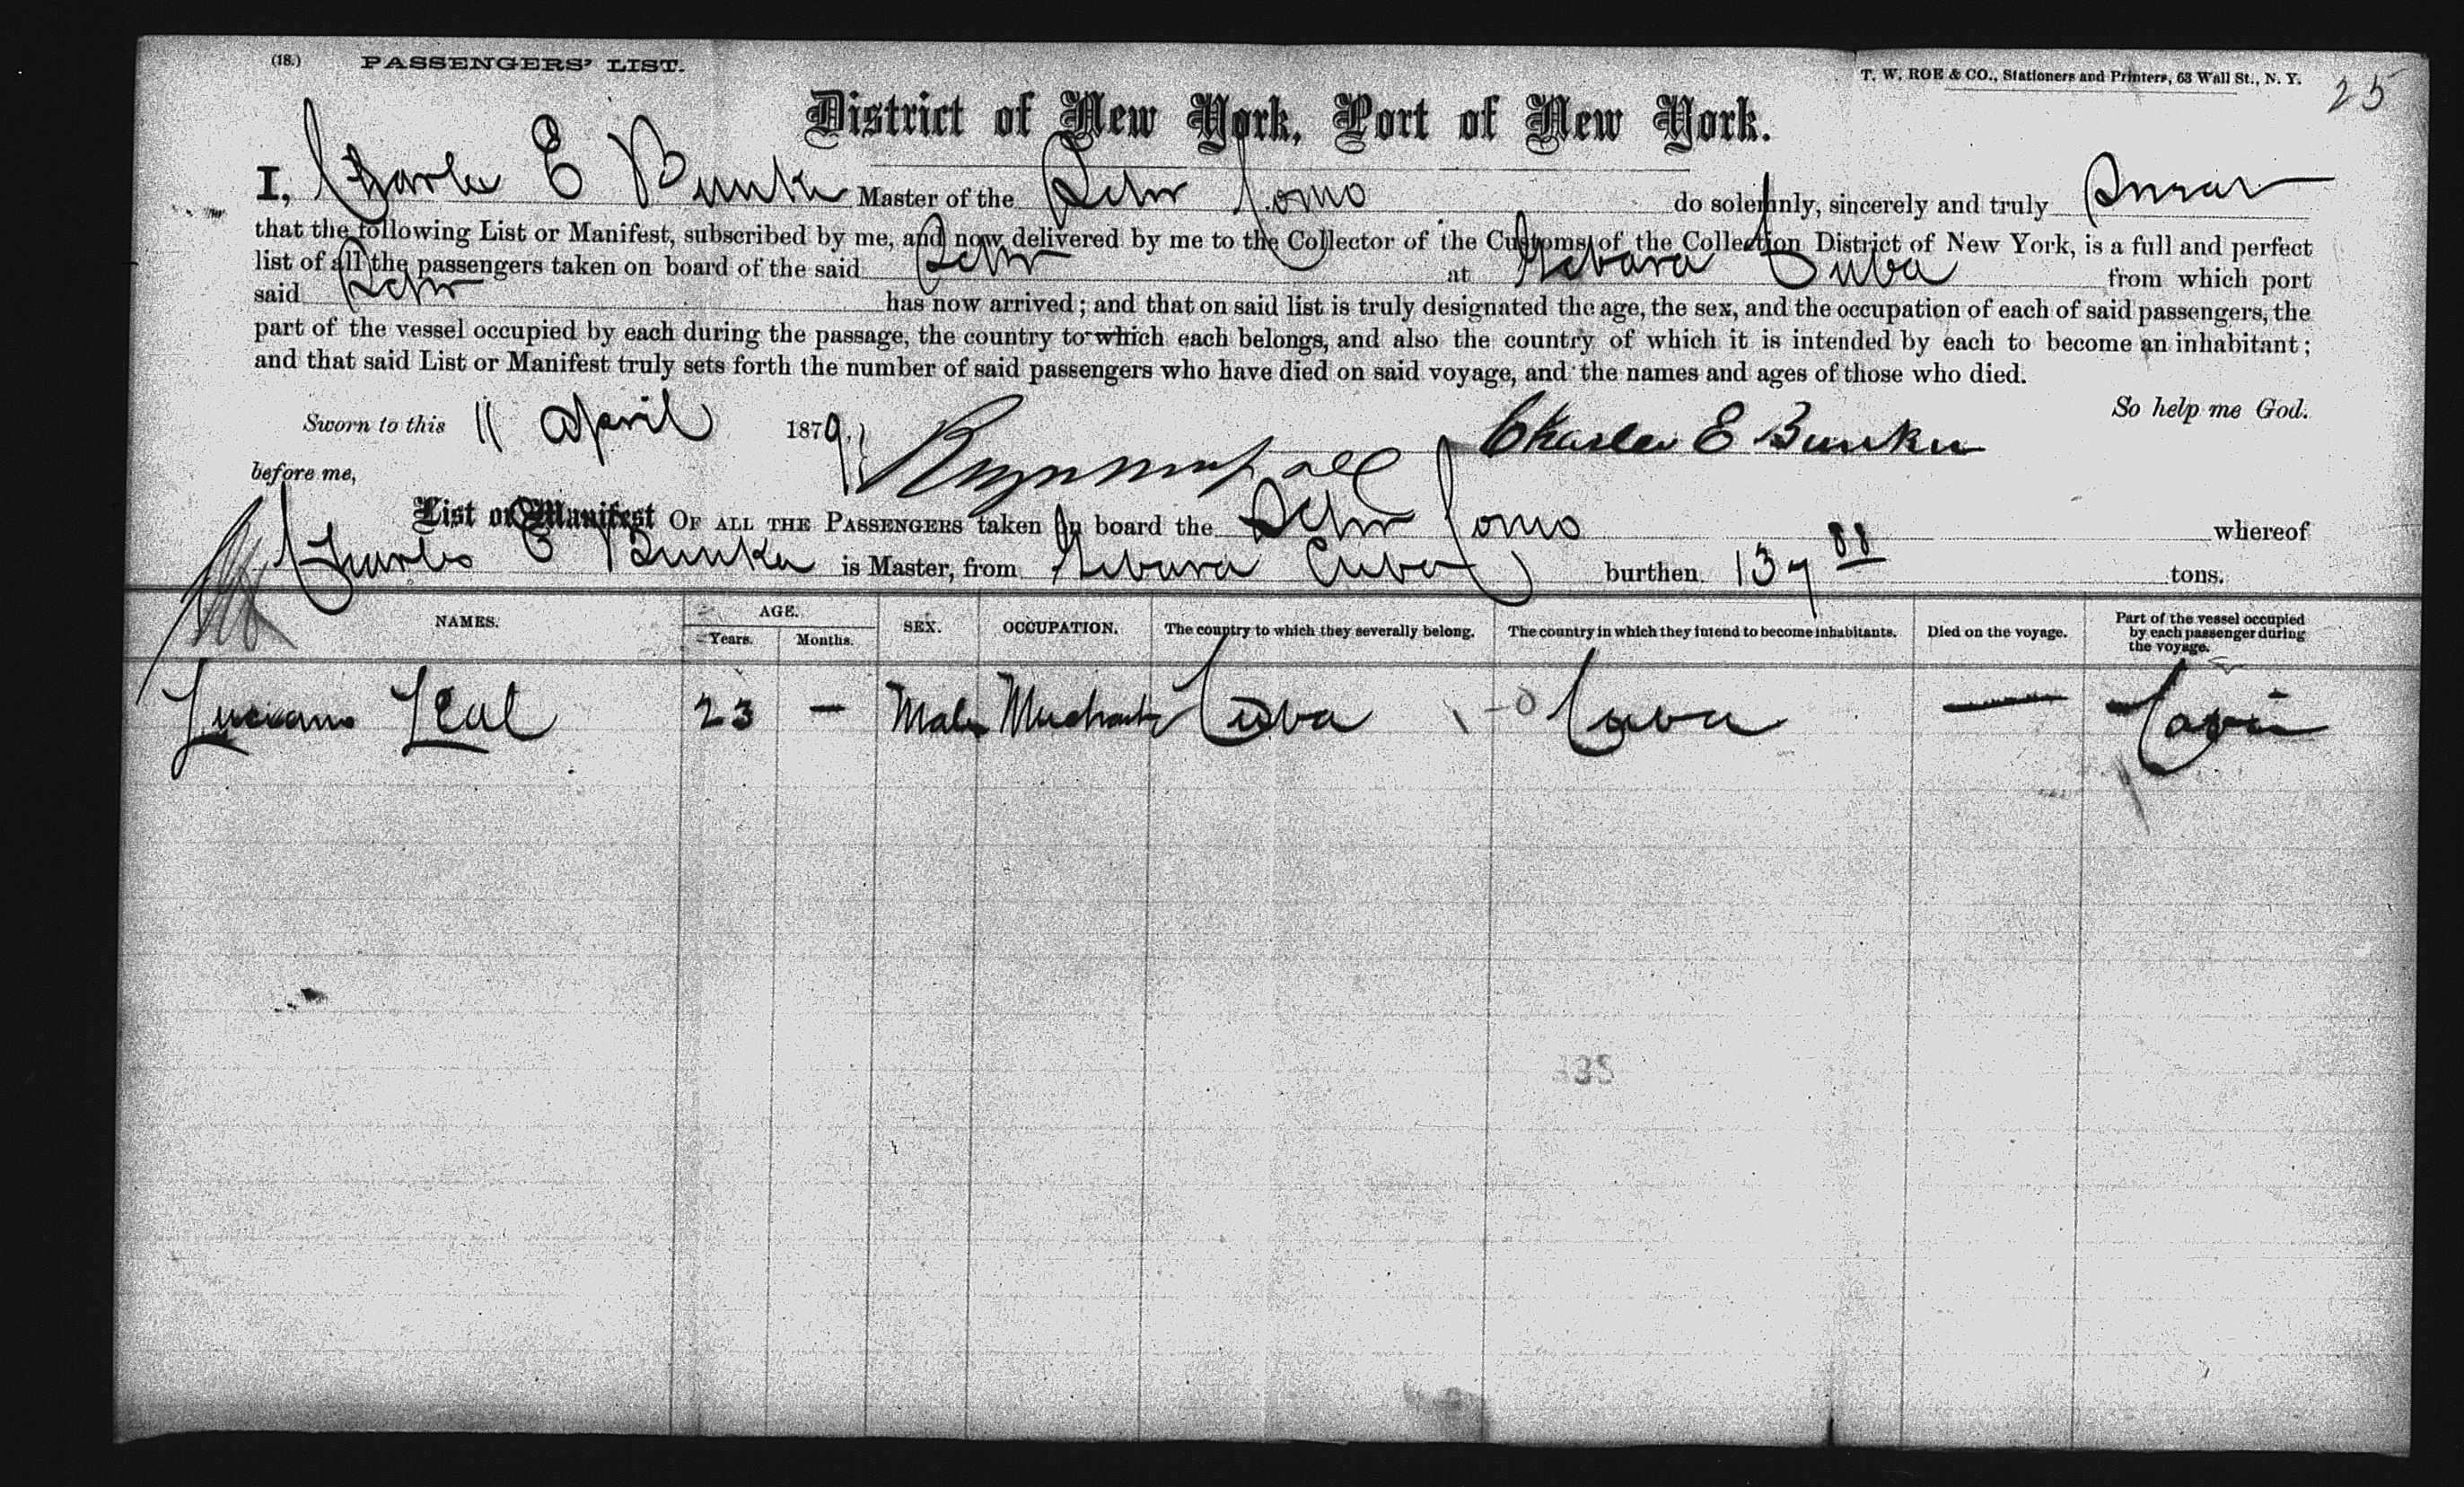 (18.) PASSENGERS' LIST.
T. W. ROE & CO., Stationers and Printers, 63 Wall St., N. Y. 25
District of New York, Port of New York.
I, Charles E Bunker Master of the Schr Lomo do solemnly, sincerely and truly Swear
that the following List or Manifest, subscribed by me, and now delivered by me to the Collector of the Customs of the Collection District of New York, is a full and perfect
list of all the passengers taken on board of the said Schr at Gebara Cuba from which port
said Schr has now arrived; and that on said list is truly designated the age, the sex, and the occupation of each of said passengers, the
part of the vessel occupied by each during the passage, the country to which each belongs, and also the country of which it is intended by each to become an inhabitant;
and that said List or Manifest truly sets forth the number of said passengers who have died on said voyage, and the names and ages of those who died.
So help me God.
Sworn to this 11 April 1879. Charles E Bunker
before me,
List or Manifest OF ALL THE PASSENGERS taken on board the Schr Lomo whereof
Charles E Bunker is Master, from Gebara Cuba burthen 137 88 tons.
NAMES. AGE. Years. Months. SEX. OCCUPATION. The country to which they severally belong. The country in which they intend to become inhabitants. Died on the voyage. Part of the vessel occupied by each passenger during the voyage.
Luciano Leal 23 — Male Merchant Cuba Cuba — Cabin